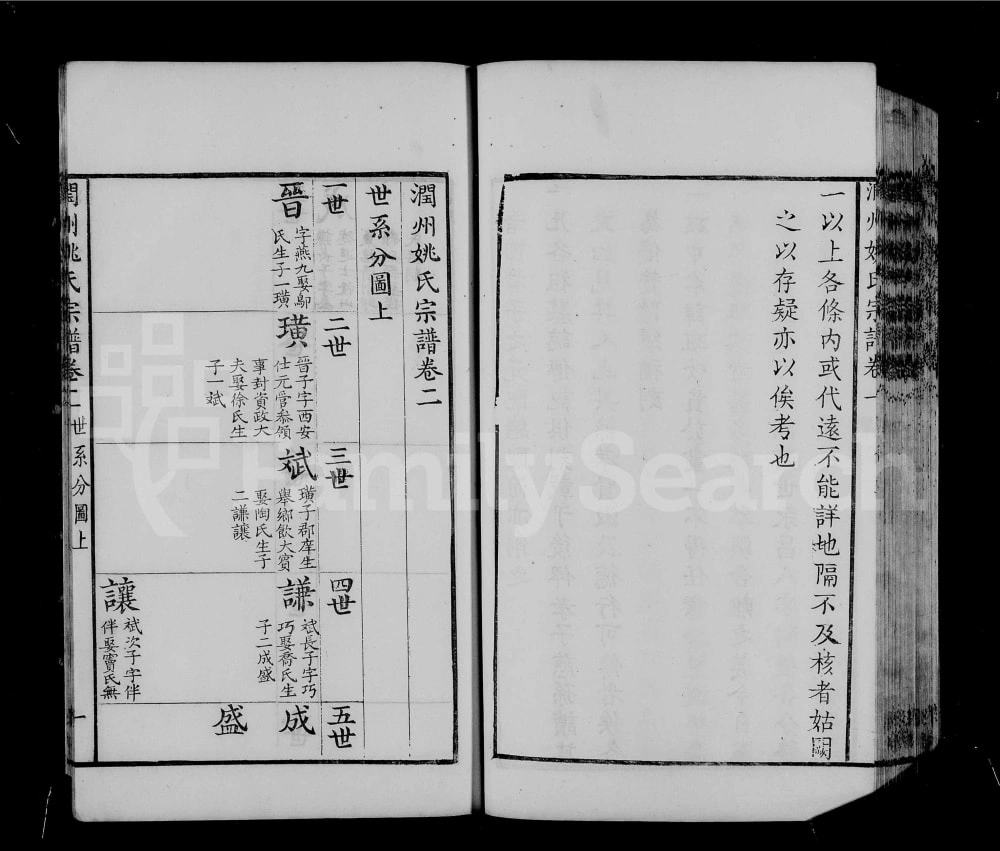 一以上各條內或代遠不能詳地隔不及核者姑闕
之以存疑亦以俟考也
潤州姚氏宗譜卷一
潤州姚氏宗譜卷二
世系分圖上
一世
二世
三世
四世
五世
晉
字燕九娶鄔
氏生子一璜
璜
晉子字西安
仕元管叅領
事封資政大
夫娶徐氏生
子一斌
斌
璜子郡庠生
舉鄉飲大賓
娶陶氏生子
二謙讓
謙
斌長子字巧
巧娶喬氏生
子二成盛
成
讓
斌次子字伴
伴娶竇氏無
盛
潤州姚氏宗譜卷二
世系分圖上
一
FamilySearch